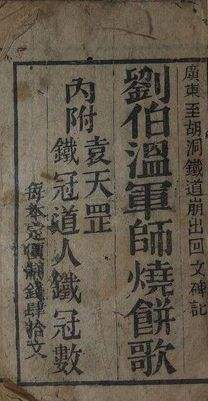 廣東至胡洞鐵道崩出回文碑記
劉伯溫軍師燒餅歌
內附
袁天罡
鐵冠道人鐵冠數
每本定價銅錢肆拾文